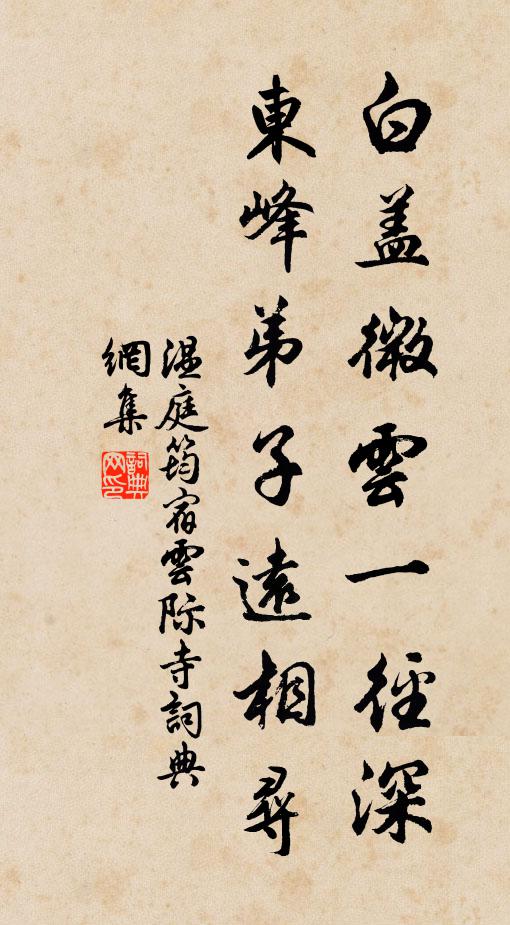 白盖微雲一徑深
東峰弟子遠相尋
温庭筠宿雲际寺詞典
網集
詞典網印